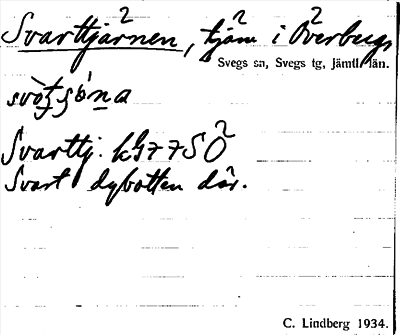 Svarttjärnen, tjärn i Överbergs
Svegs sn, Svegs tg, jämtl. län.
Svarttj. kG77SÖ
Svart dybotten där.
C. Lindberg 1934.